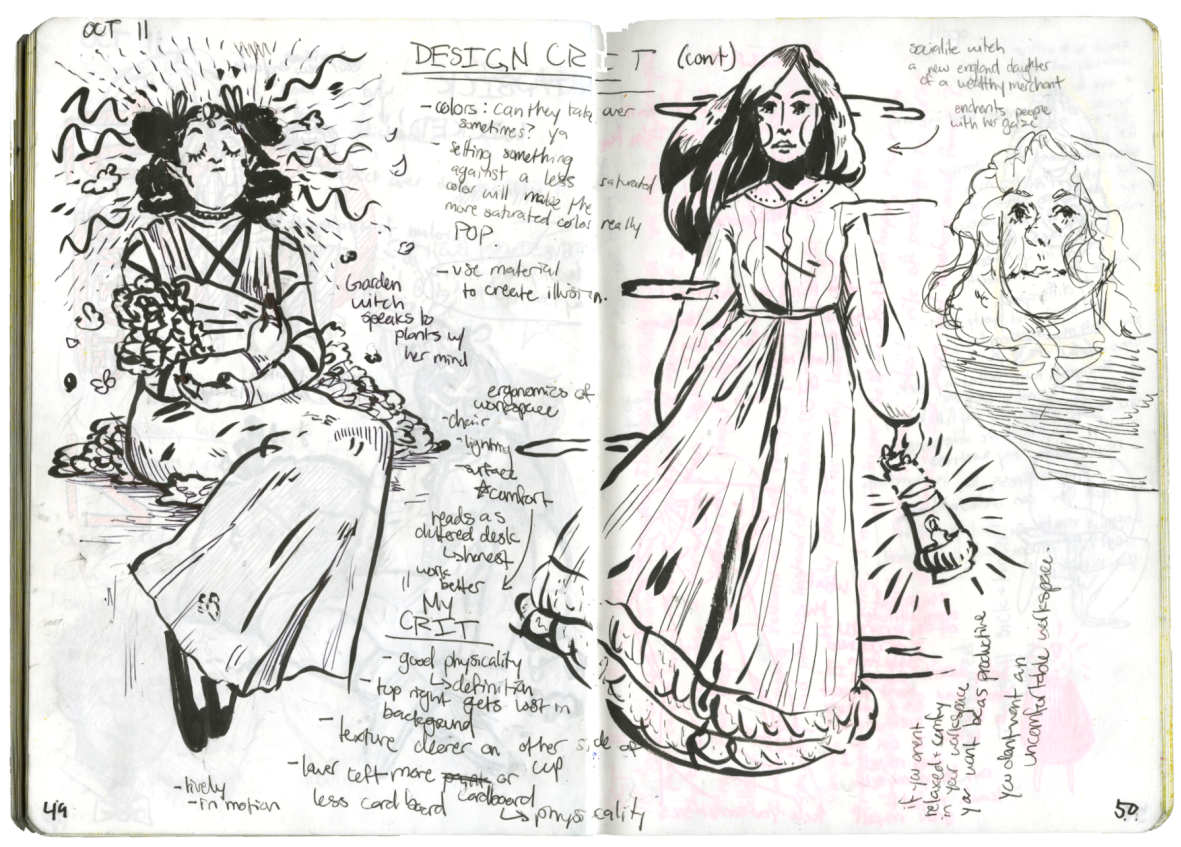 OCT 11
DESIGN CRIT (cont)
- colors: can they take over
sometimes? ya
- setting something
against a less saturated
color will make the
more saturated color really
POP
- use material
to create illusion.
Garden
witch
speaks to
plants w/
her mind
ergonomics of
workspace
- chair
- lighting
- surface
☆comfort
reads as
cluttered desk
↳honest
work
better
MY
CRIT
- good physicality
↳definition
- top right gets lost in
background
- texture clearer on other side of
cup
- lower left more or
cardboard
less cardboard
↳physicality
- lively
- in motion
49
socialite witch
a new england daughter
of a wealthy merchant
enchants people
with her gaze
if you arent
relaxed + comfy
in your workspace
you wont be as productive
you dont want an
uncomfortable workspace.
50